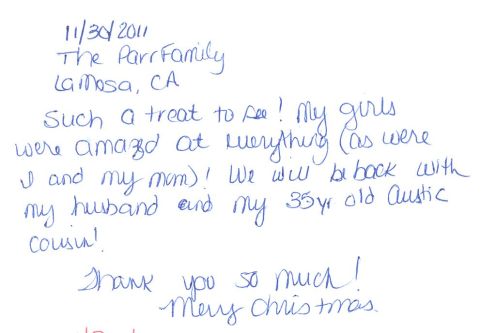 11/30/2011
The Parr Family
La Mosa, CA
Such a treat to see! My girls
were amazd at everything (as were
I and my mom)! We will be back with
my husband and my 35yr old austic
cousin!
Thank you so much!
Merry Christmas.